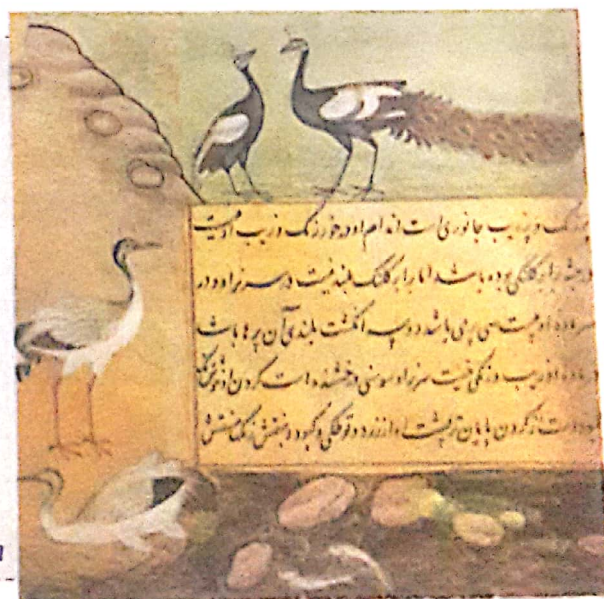 پر رنگ و پر زیب جانوری است اندام او در خور رنگ و زیب او نیست
در جثه برابر کلنگی بوده باشد اما برابر کلنگ بلند نیست در سر نر او و در
سر ماده او بیست سی پری باشد دو سه انگشت بلندی آن پرها باشد
در ماده او زیب و رنگی نیست سر نر او سوسنی درخشنده است گردن او
است از گردن پایان تر پشت او از زرد و طوطکی و کبود و بنفش رنگ منقش